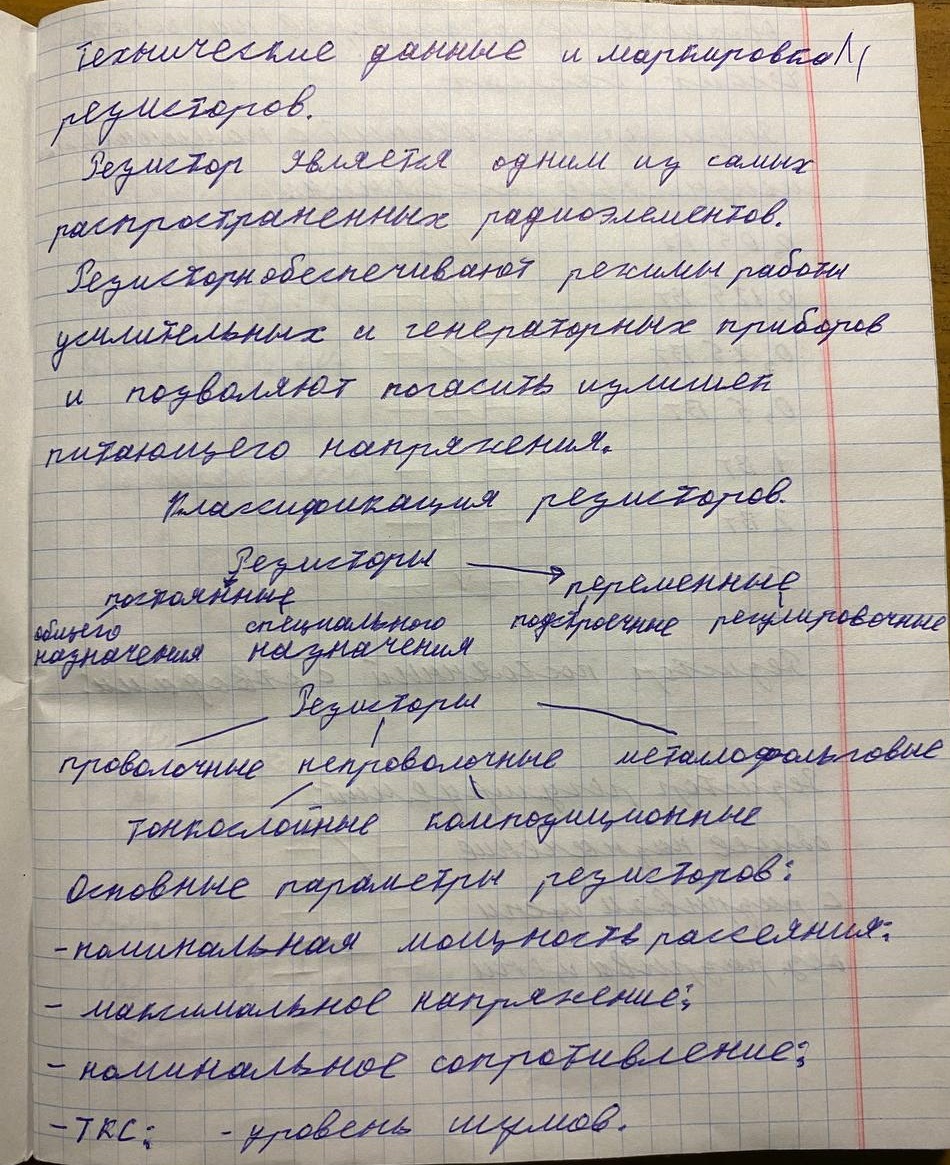 Технические данные и маркировка
резисторов.
Резистор является одним из самых
распространенных радиоэлементов.
Резисторы обеспечивают режимы работы
усилительных и генераторных приборов
и позволяют погасить излишек
питающего напряжения.
Классификация резисторов.
Резисторы
постоянные переменные
общего назначения специального назначения подстроечные регулировочные
Резисторы
проволочные непроволочные металлофольговые
тонкослойные композиционные
Основные параметры резисторов:
- номинальная мощность рассеяния;
- максимальное напряжение;
- номинальное сопротивление;
- ТКС; - уровень шумов.